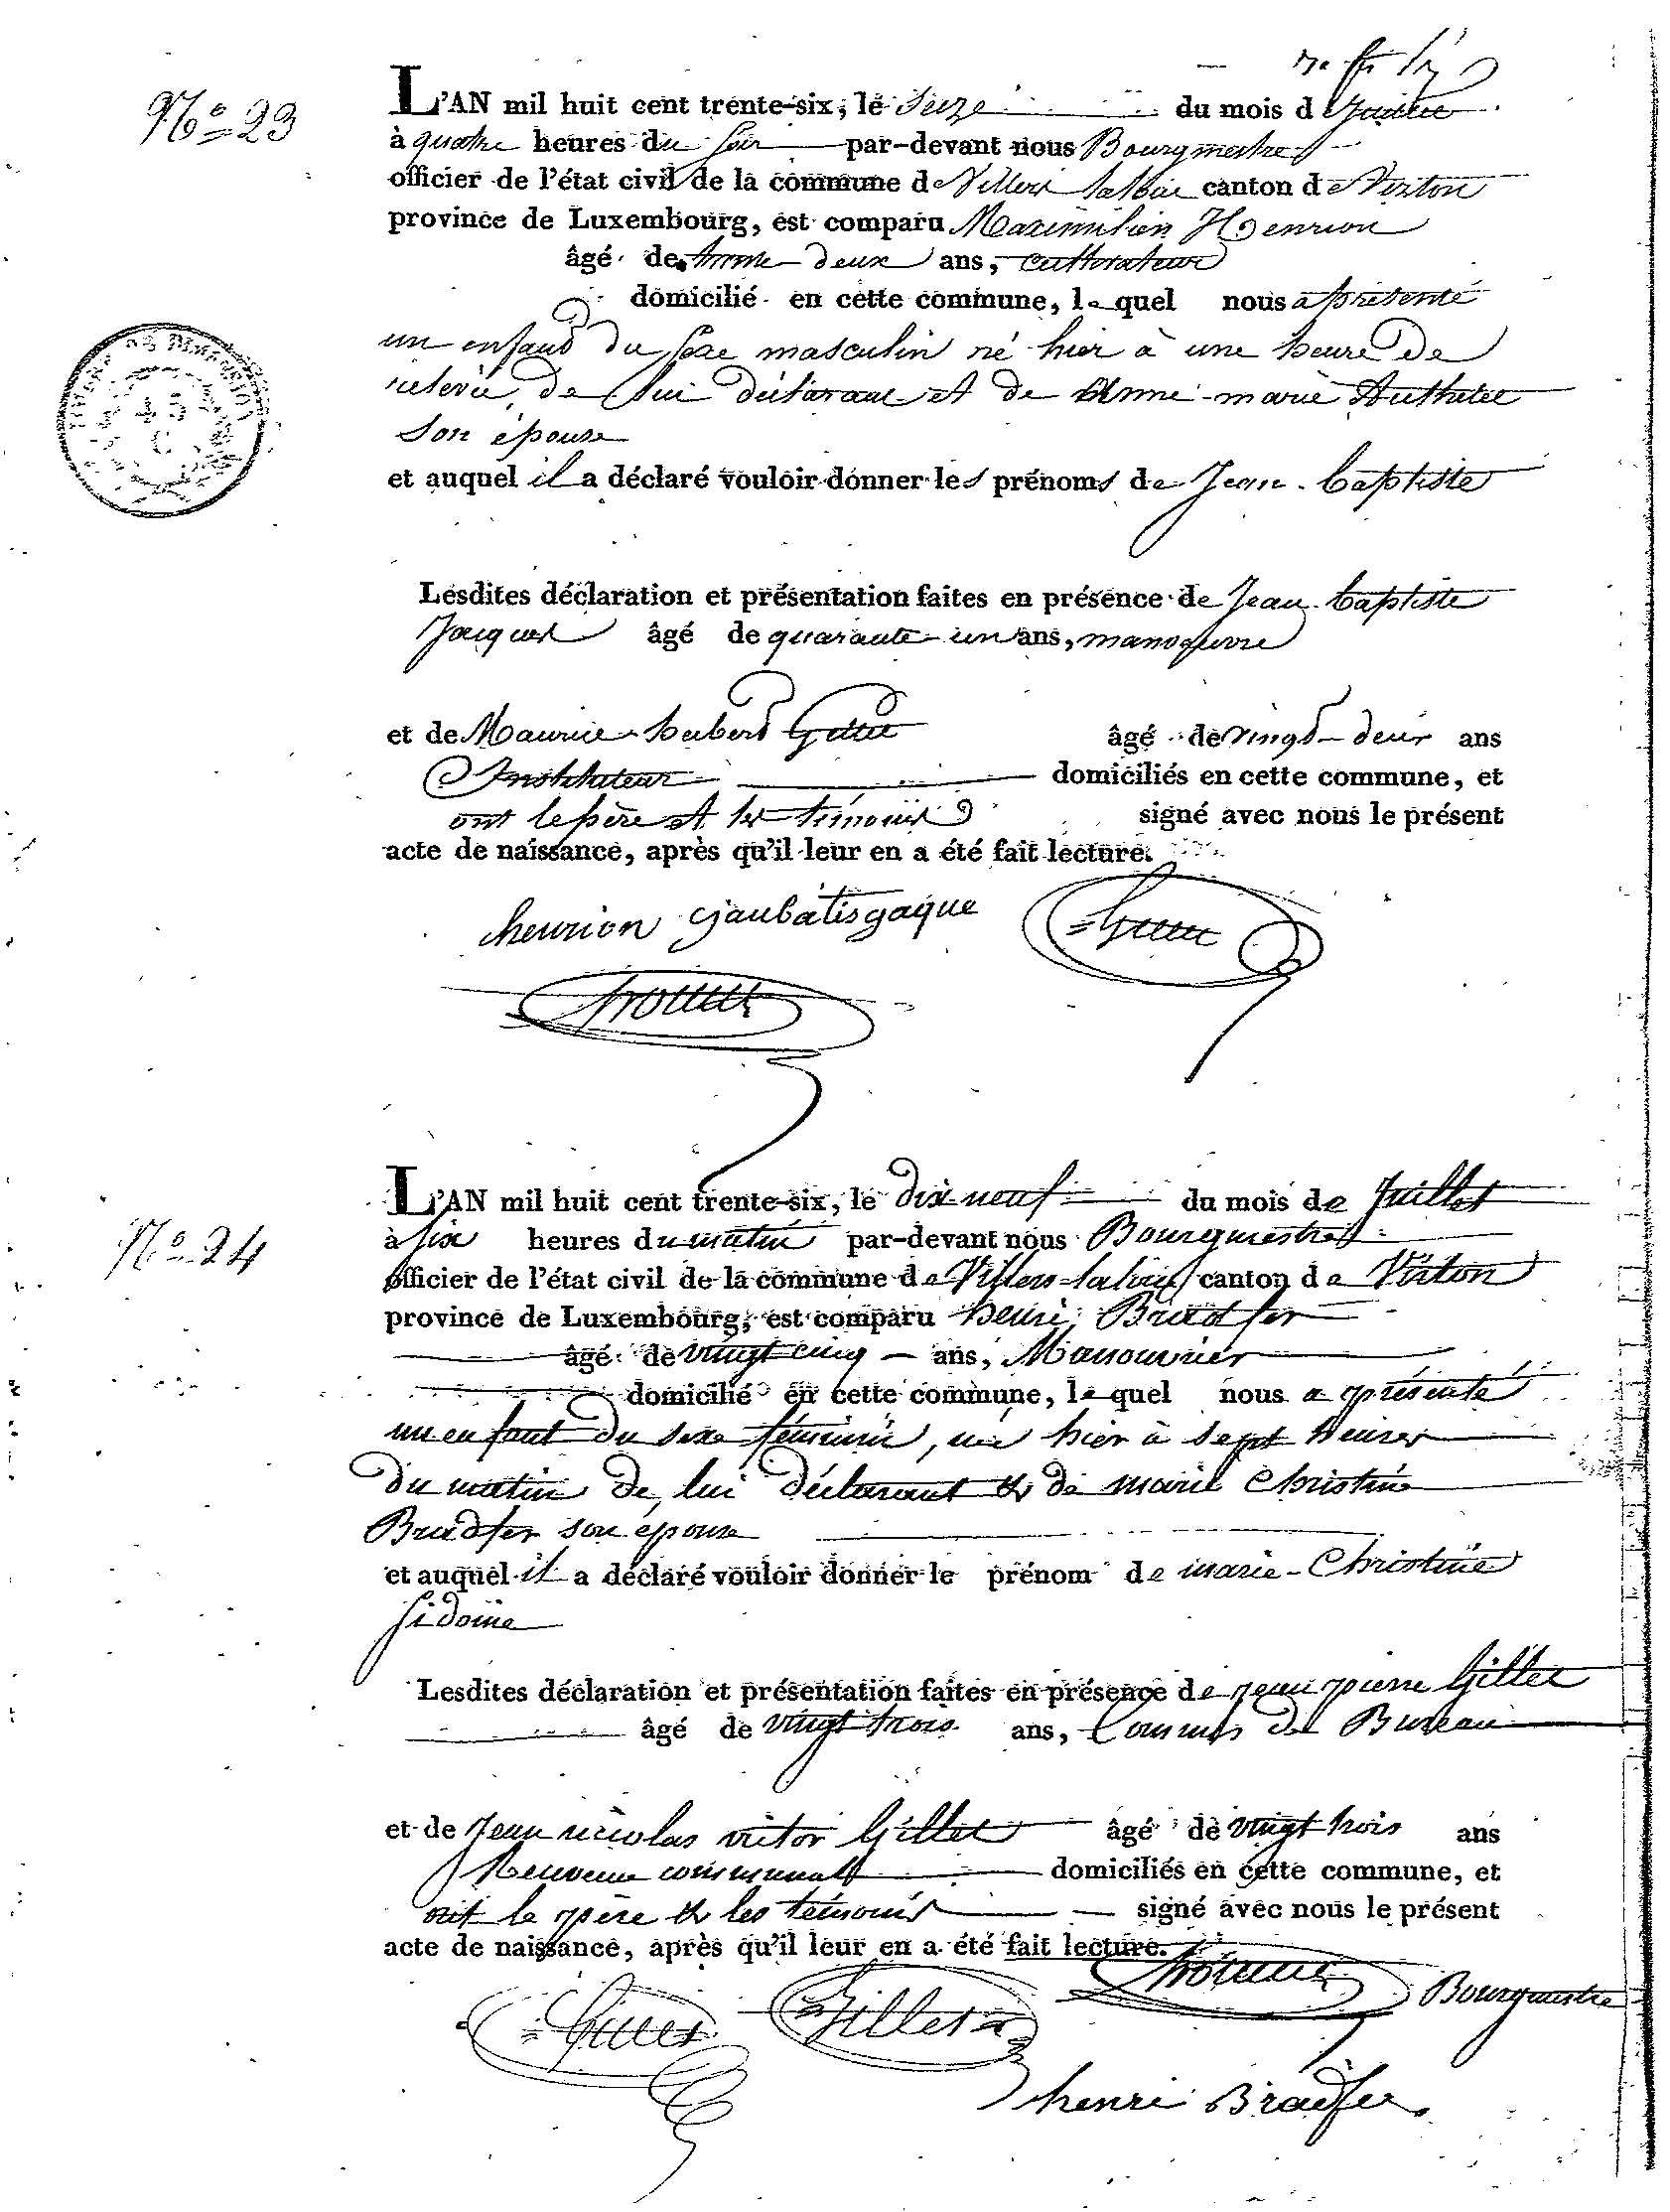 N.o 23
L'AN mil huit cent trente-six, le seize du mois de Juillet
à quatre heures du soir par-devant nous Bourgmestre
officier de l'état civil de la commune de Villers la loue canton de Virton
province de Luxembourg, est comparu Maximilien Henrion
âgé de trente deux ans, cultivateur
domicilié en cette commune, lequel nous a présenté
un enfant du sexe masculin né hier à une heure de
relevée, de lui déclarant et de Anne-marie
son épouse
et auquel il a déclaré vouloir donner les prénoms de Jean-baptiste
Lesdites déclaration et présentation faites en présence de Jean baptiste
Jacques âgé de quarante-un ans, manoeuvre
et de Maurice hubert Gillet âgé de vingt-deux ans
Instituteur domiciliés en cette commune, et
ont le père et les témoins signé avec nous le présent
acte de naissance, après qu'il leur en a été fait lecture.
henrion Gaubatisgaque
N.o 24
L'AN mil huit cent trente-six, le dix neuf du mois de Juillet
à six heures du matin par-devant nous Bourgmestre
officier de l'état civil de la commune de Villers-laloue canton de Virton
province de Luxembourg, est comparu henri Bradfer
âgé de vingt cinq ans, Manouvrier
domicilié en cette commune, lequel nous a présenté
un enfant du sexe féminin, né hier à sept heures
du matin de lui déclarant & de marie Christine
Bradfer son épouse
et auquel il a déclaré vouloir donner le prénom de marie-Christine
Sidonie
Lesdites déclaration et présentation faites en présence de jean pierre Gillet
âgé de vingt trois ans, Commis de Bureau
et de Jean nicolas victor Gillet âgé de vingt trois ans
Receveur communal domiciliés en cette commune, et
ont le père & les témoins signé avec nous le présent
acte de naissance, après qu'il leur en a été fait lecture.
Gillet Bourgmestre
henri Bradfer